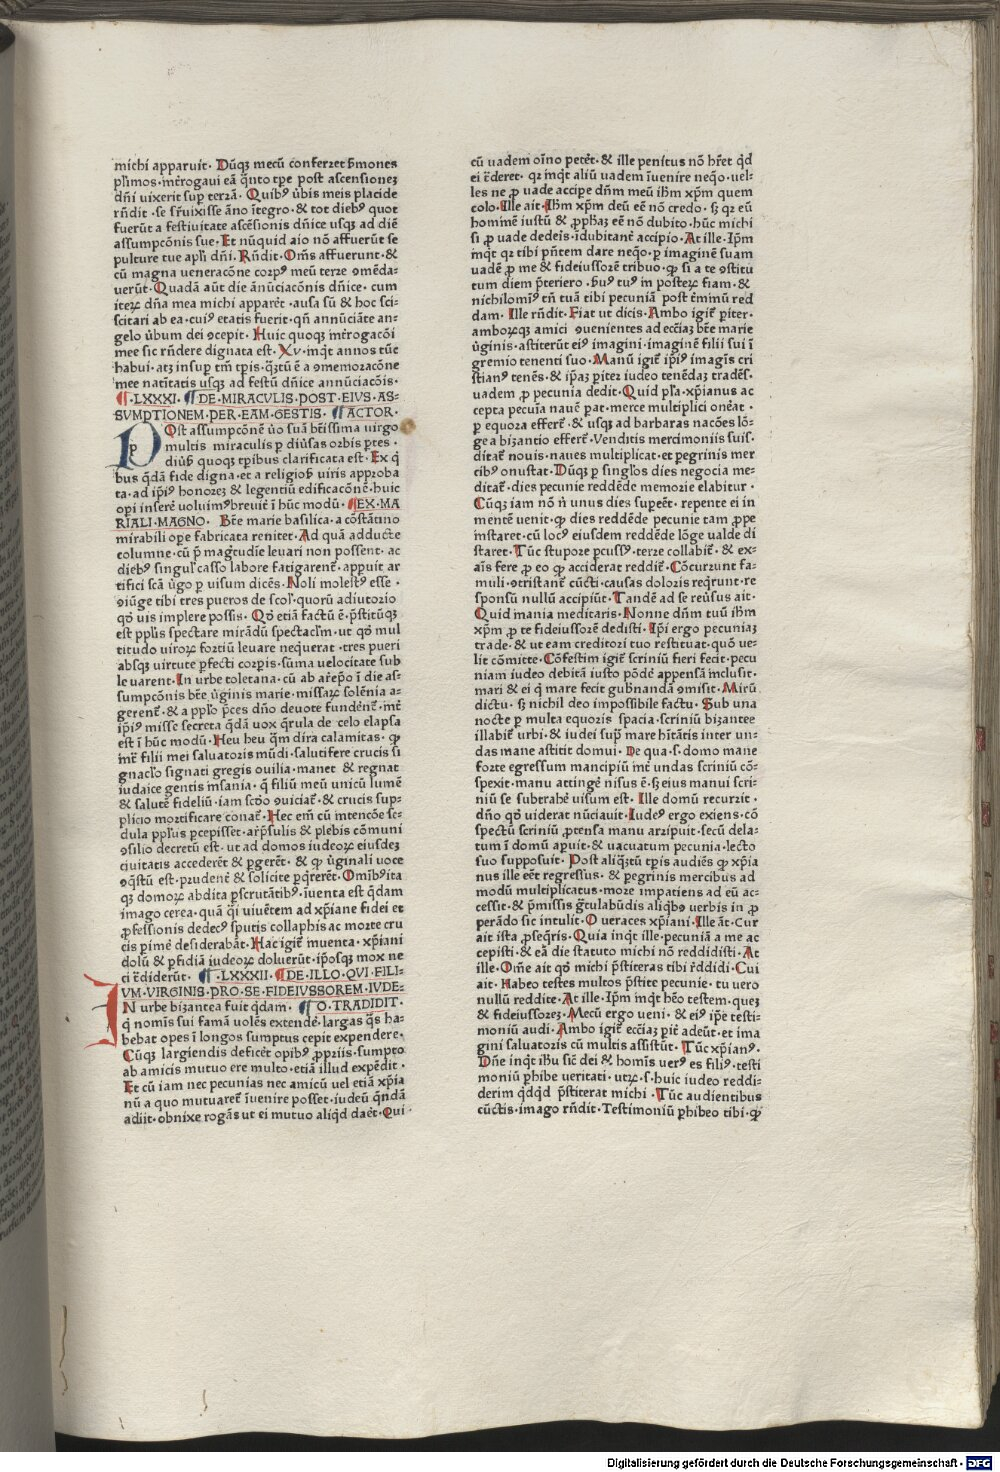 michi apparuit· Dūqȝ mecū conferret ẜmones
pl'imos·int'rogaui eā q̄nto tp̄e post ascensioneȝ
dn̄i vixerit sup terzā· Quibꝰ ūbis meis placide
rn̄dit·se sr̄uixisse āno īt̄egro·& tot diebꝰ quot
fuerūt a festiuitate ascēsionis dn̄ice usqȝ ad diē
assumpcōnis sue·Et nūquid aio nō affuerūt se
pulture tue apl'i dn̄i· Rn̄dit·Om̄s affuerunt·&
cū magna ueneracōne corpꝰ meū terre ꝯmēda-
uerūt·Quadā aūt die ānūciacōnis dn̄ice·cum
iteꝝ dn̄a mea michi apparēt·ausa sū & hoc sci-
scitari ab ea·cuiꝰ etatis fuerit·qn̄ annūciāte an-
gelo ūbum dei ꝯcepit·Huic quoqȝ int'rogacōi
mee sic rn̄dere dignata est·Xv·inq̄t annos tūc
habui·atȝ insup tm̄ tp̄is·q̄ztū ē a ꝯmemoracōne
mee natītatis usqȝ ad festū dn̄ice annūciacōis·
¶·LXXXI·¶DE·MIRACVLIS·POST·EIVS·AS-
SVMPTIONEM·PER·EAM·GESTIS· ¶ACTOR·
POst assumpcōnē ūo suā btīssima uirgo
multis miraculis p diūsas orbis ptes·
diūẜ quoqȝ tp̄ribus clarificata est·Ex q̄
bus q̄dā fide digna·et a religioẜ viris approba
ta·ad ip̄iꝰ honorez & legentiū edificacōnē·huic
op̄i inserē voluimꝰbreuit' ī hūc modū· ¶EX·MA
RIALI·MAGNO· Bt̄e marie basilica·a cōstātino
mirabili ope fabricata renitet·Ad quā adducte
columne·cū p̄ mag'tudīe leuari non possent·ac
diebꝰ singul' casso labore fatigarent̄·appuit ar
tifici sc̄ā ūgo p uisum dicēs·Noli molestꝰ esse·
ꝯiūge tibi tres pueros de scol'·quorū adiutorio
qd̄ uis implere possis· Qd̄ etiā factū ē·p̄stitūqȝ
est ppl'is spectare mirādū spectacl'm·ut qd̄ mul
titudo uiroꝝ fortiū leuare nequerat·tres pueri
absqȝ uirtute pfecti corpis·sūma uelocitate sub
leuarent·In urbe toletana·cū ab ar̄ep̄o ī die as-
sumpcōnis bt̄e ūginis marie·missaꝝ solēnia a-
gerent̄·& a pplo p̄ces dn̄o deuote fundēnt̄·int'
ip̄iꝰ misse secreta q̄dā uox q̄rula de celo elapsa
est ī hūc modū·Heu heu q̄m dira calamitas·ꝙ
int' filii mei saluatoris mūdi·salutifere crucis si
gnacl'o signati gregis ouilia·manet & regnat
iudaice gentis īnsania·q̄ filiū meū unicū lumē
& salutē fideliū·iam scd̄o ꝯuiciat̄·& crucis sup-
plicio mortificare conat̄·Hec em̄ cū intencōe se-
dula ppl'us pcepisset·ar̄p̄sulis & plebis cōmuni
ꝯsilio decretū est·ut ad domos iudeoꝝ eiusdeȝ
ciuitatis accederēt & pgerēt·& ꝙ ūginali uoce
ꝯq̄stū est·prudent' & solicite pq̄rerēt·Omībꝰita
qȝ domoꝝ abdita pscrutātibꝰ·iuenta est q̄dam
imago cerea·quā q̄i viuētem ad xp̄iane fidei et
pfessionis dedecꝰ sputis collaphis ac morte cru
cis pimē desiderabāt·Hac igit̄ inuenta·xp̄iani
dolū & pfidiā iudeoꝝ doluerūt·ip̄osqȝ mox ne
ci t̄diderūt· ¶·LXXXII·¶DE·ILLO·QVI·FILI-
VM·VIRGINIS·PRO·SE·FIDEIVSSOREM·IVDE-
IN urbe bizantea fuit q̄dam· ¶O·TRADIDIT·
q̄ nomīs sui famā uolēs extendē·largas q̄s ha-
bebat opes ī longos sumptus cepit expendere·
Cūqȝ largiendis deficēt opibꝰ ppriis·sumpto
ab amicis mutuo ere multo·etiā illud expēdit·
Et cū iam nec pecunias nec amicū uel etiā xp̄ia
nū a quo mutuaret̄ īuenire posset·iudeū q̄ndā
adiit·obnixe rogās ut ei mutuo aliqd daēt·Qui
cū uadem oīno petēt·& ille penitus nō hr̄et qd̄
ei c̄deret·qꝛ inq̄t aliū uadem īuenire neqo·uel-
les ne p uade accipe dn̄m meū ih̄m xp̄m quem
colo·Ille ait·Ih̄m xp̄m deū eē nō credo·sȝ qꝛ eū
hominē iustū & pphaȝ eē nō dubito·hūc michi
si p uade dedeīs·idubitant' accipio·At ille·Ip̄m
inq̄t qꝛ tibi pn̄tem dare neqo·p imaginē suam
uadē p me & fideiussorē tribuo·ꝙ si a te ꝯstitu
tum diem p̄teriero·ẜuꝰ tuꝰ in posteꝝ fiam·&
nichilominꝰ tn̄ tuā tibi pecuniā post t'minū red
dam·Ille rn̄dit·Fiat ut dicis·Ambo igit̄ pīter·
amboꝝqȝ amici ꝯuenientes ad ecc̄iaȝ bt̄e marie
ūginis·astiterūt eiꝰ imagini·imaginē filii sui ī
gremio tenenti suo·Manū igit̄ ip̄iꝰ imagīs cri
stianꝰ tenēs·& ip̄aȝ pitez iudeo tenēdaȝ tradēs·
uadem p pecunia dedit·Quid pl'a·xp̄ianus ac
cepta pecuīa nauē pat·merce multiplici onēat·
p equora efferēt·& usqȝ ad barbaras nacōes lō-
ge a bizantio effert̄·Venditis mercimoniis suis·
ditat̄ nouis·naues multiplicat·et pegrinis mer
cibꝰ onustat·Dūqȝ p singl'os dies negocia me-
ditat̄·dies pecunie reddēde memorie elabitur·
Cūqȝ iam nō n̄ unus dies supeēt·repente ei in
mentē uenit·ꝙ dies reddēde pecunie tam ppe
instaret·cū locꝰ eiusdem reddēde lōge ualde di
staret·Tūc stupore pcussꝰ·terre collabit̄·& ex-
aīs fere p eo ꝙ acciderat reddit̄·Cōcurzunt fa-
muli·ꝯtristant̄ cūcti·causas doloris reqrunt·re
sponsū nullū accipiūt·Tandē ad se reūsus ait·
Quid mania meditaris·Nonne dn̄m tuū ih̄m
xp̄m p te fideiussorē dedisti·Ip̄i ergo pecuniaȝ
trade·& ut eam creditori tuo restituat·quō ue-
lit cōmitte·Cōfestim igit̄ scriniū fieri fecit·pecu
niam iudeo debitā iusto pōdē appensā inclusit·
mari & ei q̄ mare fecit gubnandā ꝯmisit·Mirū
dictu·sȝ nichil deo impossibile factu·Sub una
nocte p multa equoris spacia·scriniū bizantee
illabit̄ urbi·& iudei sup mare hītātis inter un-
das mane astitit domui·De qua·s·domo mane
forte egressum mancipiū int' undas scriniū cō-
spexit·manu attingē nisus ē·sȝ eius manui scri-
niū se subtrahē uisum est· Ille domū recurzit·
dn̄o qd̄ uiderat nūciauit·Iudeꝰ ergo exiens·cō
spectū scriniū ptensa manu arzipuit·secū dela-
tum ī domū apuit·& uacuatum pecunia·lecto
suo supposuit· Post aliq̄stū tp̄is audiēs ꝙ xp̄ia
nus ille eēt regressus·& pegrinis mercibus ad
modū multiplicatus·more impatiens ad eū ac-
cessit·& p̄missis g̃tulabūdis aliqbꝯ uerbis in p
perādo sic intulit·O ueraces xp̄iani·Ille āt·Cur
ait ista pseqris·Quia inq̄t ille·pecuniā a me ac
cepisti·& eā die statuto michi nō reddidisti·At
ille·Om̄e ait qd̄ michi p̄stiteras tibi r̄ddidi·Cui
ait·Habeo testes multos p̄stite pecunie·tu vero
nullū reddite·At ille·Ip̄m inq̄t hēo testem·queȝ
& fideiussoreȝ·Mecū ergo ueni·& eiꝰ ip̄e testi-
moniū audi·Ambo igit̄ ecc̄iaȝ pit' adeūt·et ima
gini saluatoris cū multis assistūt· Tūc xp̄ianꝰ·
Dn̄e inq̄t ih̄u sic̄ dei & homīs uerꝰ es filiꝰ·testi
moniū phibe ueritati·utꝝ·s·huic iudeo reddi-
derim qdqd p̄stiterat michi·Tūc audientibus
cūctis·imago rn̄dit·Testimoniū phibeo tibi·ꝙ
Digitalisierung gefördert durch die Deutsche Forschungsgemeinschaft - DFG